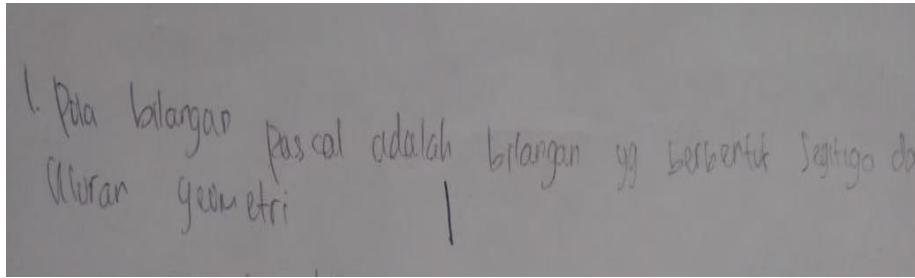 1. Pola bilangan pascal adalah bilangan yg berbentuk segitiga da
aturan geometri